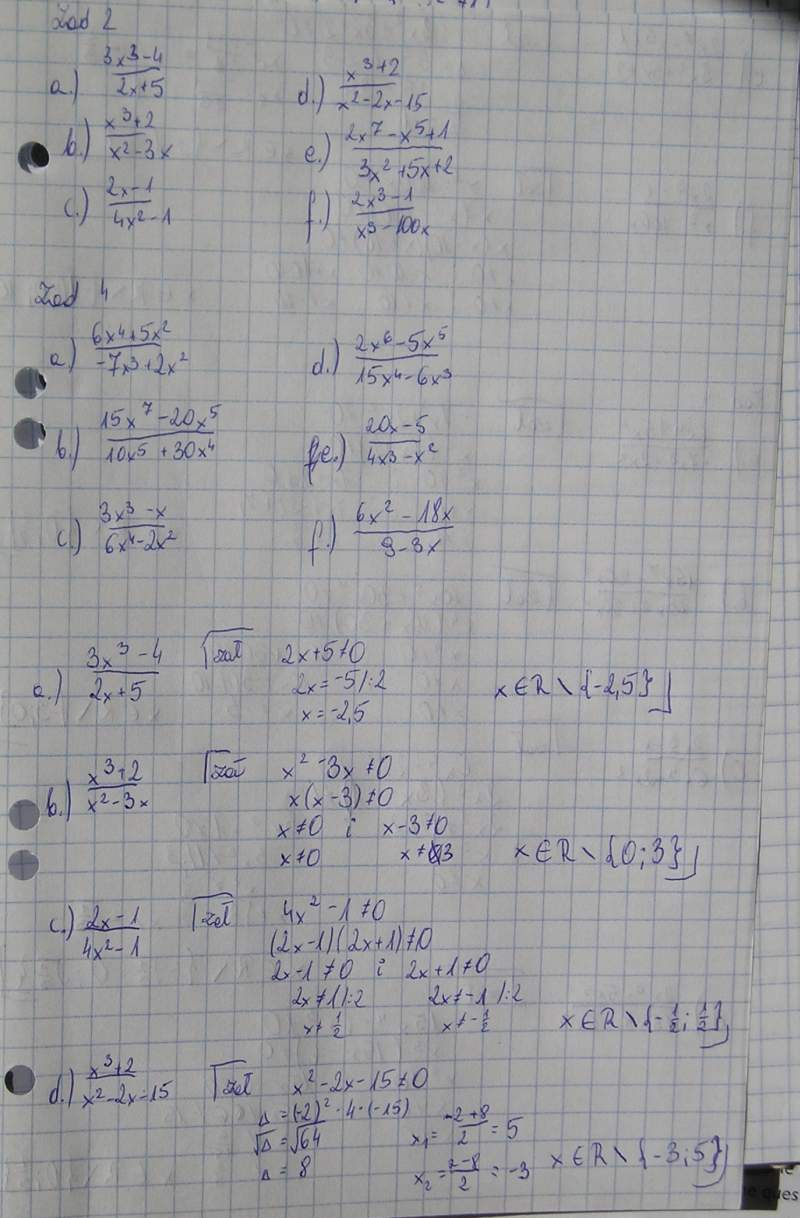 Zad 2
a.) 3x³-4 / 2x+5
d.) x³+2 / x²-2x-15
b.) x³+2 / x²-3x
e.) 2x⁷-x⁵+1 / 3x²+5x+2
c.) 2x-1 / 4x²-1
f.) 2x³-1 / x³-100x
Zad 4
a) 6x⁴+5x² / -7x³+2x²
d.) 2x⁶-5x⁵ / 15x⁴-6x³
b.) 15x⁷-20x⁵ / 10x⁵+30x⁴
e.) 20x-5 / 4x³-x²
c.) 3x³-x / 6x⁴-2x²
f.) 6x²-18x / 9-3x
a.) 3x³-4 / 2x+5 zał 2x+5≠0
2x=-5/:2
x=-2,5 x∈R\{-2,5}
b.) x³+2 / x²-3x zał x²-3x≠0
x(x-3)≠0
x≠0 i x-3≠0
x≠0 x≠3 x∈R\{0;3}
c.) 2x-1 / 4x²-1 zał 4x²-1≠0
(2x-1)(2x+1)≠0
2x-1≠0 i 2x+1≠0
2x≠1/:2 2x≠-1/:2
x≠1/2 x≠-1/2 x∈R\{-1/2;1/2}
d.) x³+2 / x²-2x-15 zał x²-2x-15≠0
Δ=(-2)²-4·(-15)
√Δ=√64 x₁=-2+8 / 2=5
Δ=8 x₂= -8 / 2=-3 x∈R\{-3;5}
ques